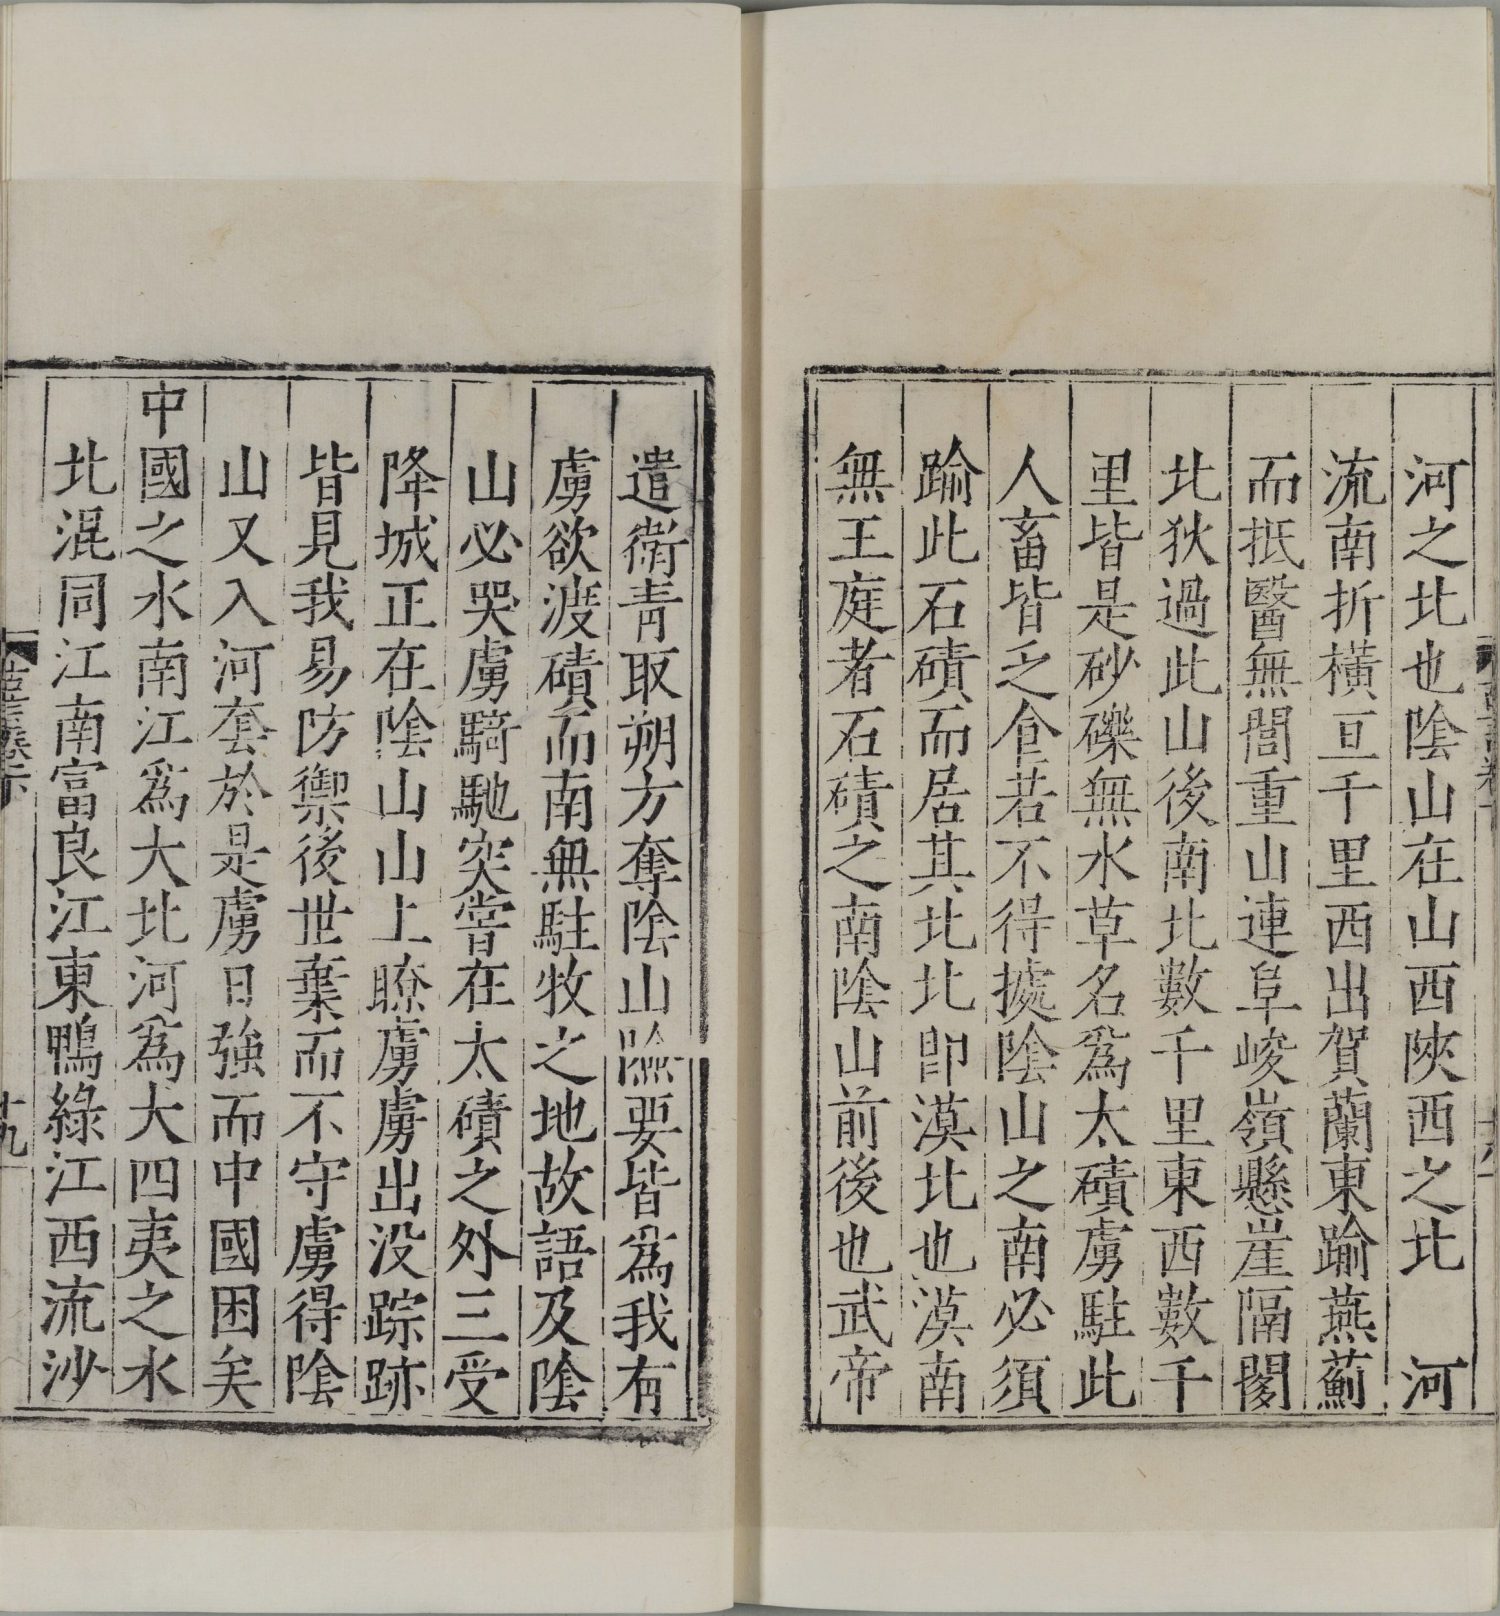 河之北也陰山在山西陝西之北　河
流南折橫亘千里西出賀蘭東踰燕薊
而抵醫無閭重山連阜峻嶺懸崖隔閡
北狄過此山後南北數千里東西數千
里皆是砂礫無水草名爲太磧虜駐此
人畜皆乏食若不得據陰山之南必須
踰此石磧而居其北北即漠北也漠南
無王庭者石磧之南陰山前後也武帝
遣衛青取朔方奪陰山險要皆爲我有
虜欲渡磧而南無駐牧之地故語及陰
山必哭虜騎馳突嘗在太磧之外三受
降城正在陰山山上瞭虜虜出没踪跡
皆見我易防禦後世棄而不守虜得陰
山又入河套於是虜日強而中國困矣
中國之水南江爲大北河爲大四夷之水
北混同江南富良江東鴨綠江西流沙
十九